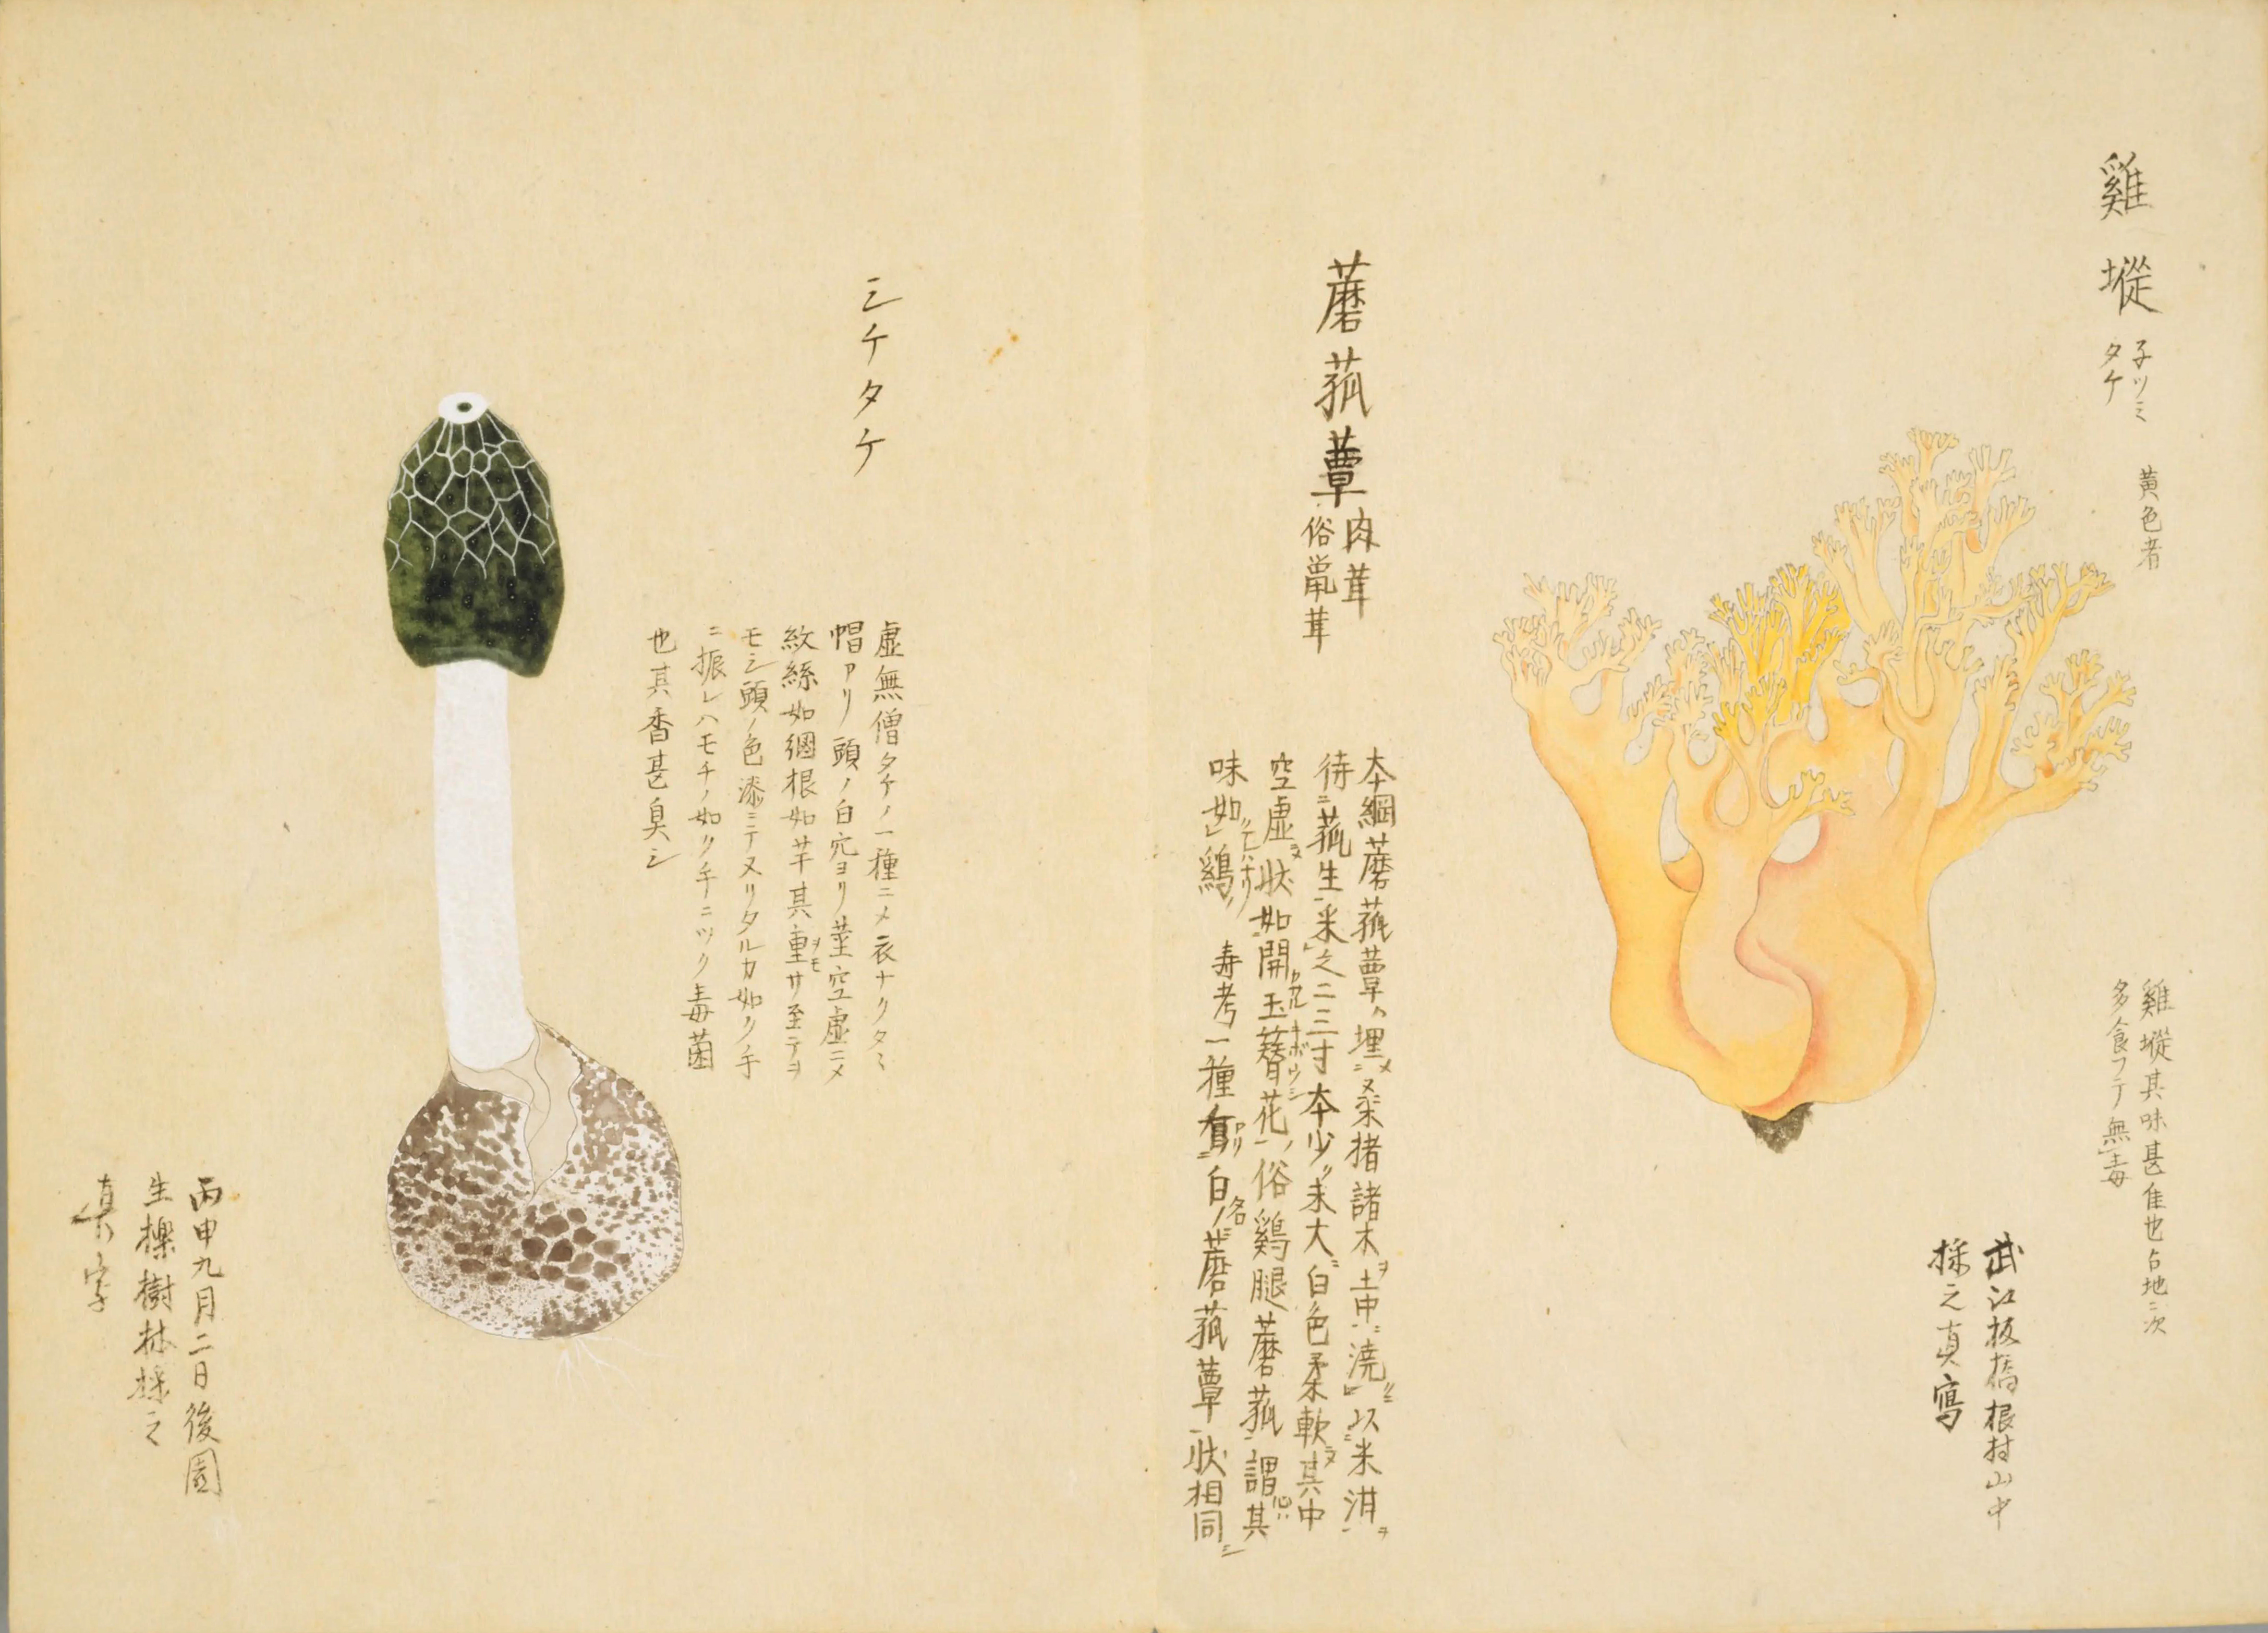 雞㙡
子ツミ
タケ
黄色者
雞㙡其味甚佳也占地ニ次
多食フテ無毒
武江板橋根村山中
採之真寫
蘑菰蕈
肉茸
俗
茸
本綱蘑菰蕈ハ埋メニ桑楮諸木ヲ土中ニ澆以米泔ヲ
待ニ菰生采之二三寸本少末大白色柔軟其中
空虚状如開玉簪花ノ俗鷄腿蘑菰謂其
味如鷄
寿考一種有白蘑菰蕈状相同シ
シケタケ
虚無僧タケノ一種ニメ衣ナクタミ
帽アリ頭ノ白穴ヨリ茎空虚ニメ
紋絲如網根如芋其重サ至テヲ
モシ頭ノ色漆ニテヌリタルカ如ク手
ニ振レハモチノ如ク手ニツク毒菌
也其香甚臭シ
丙申九月二日後園
生櫟樹林採之
真写